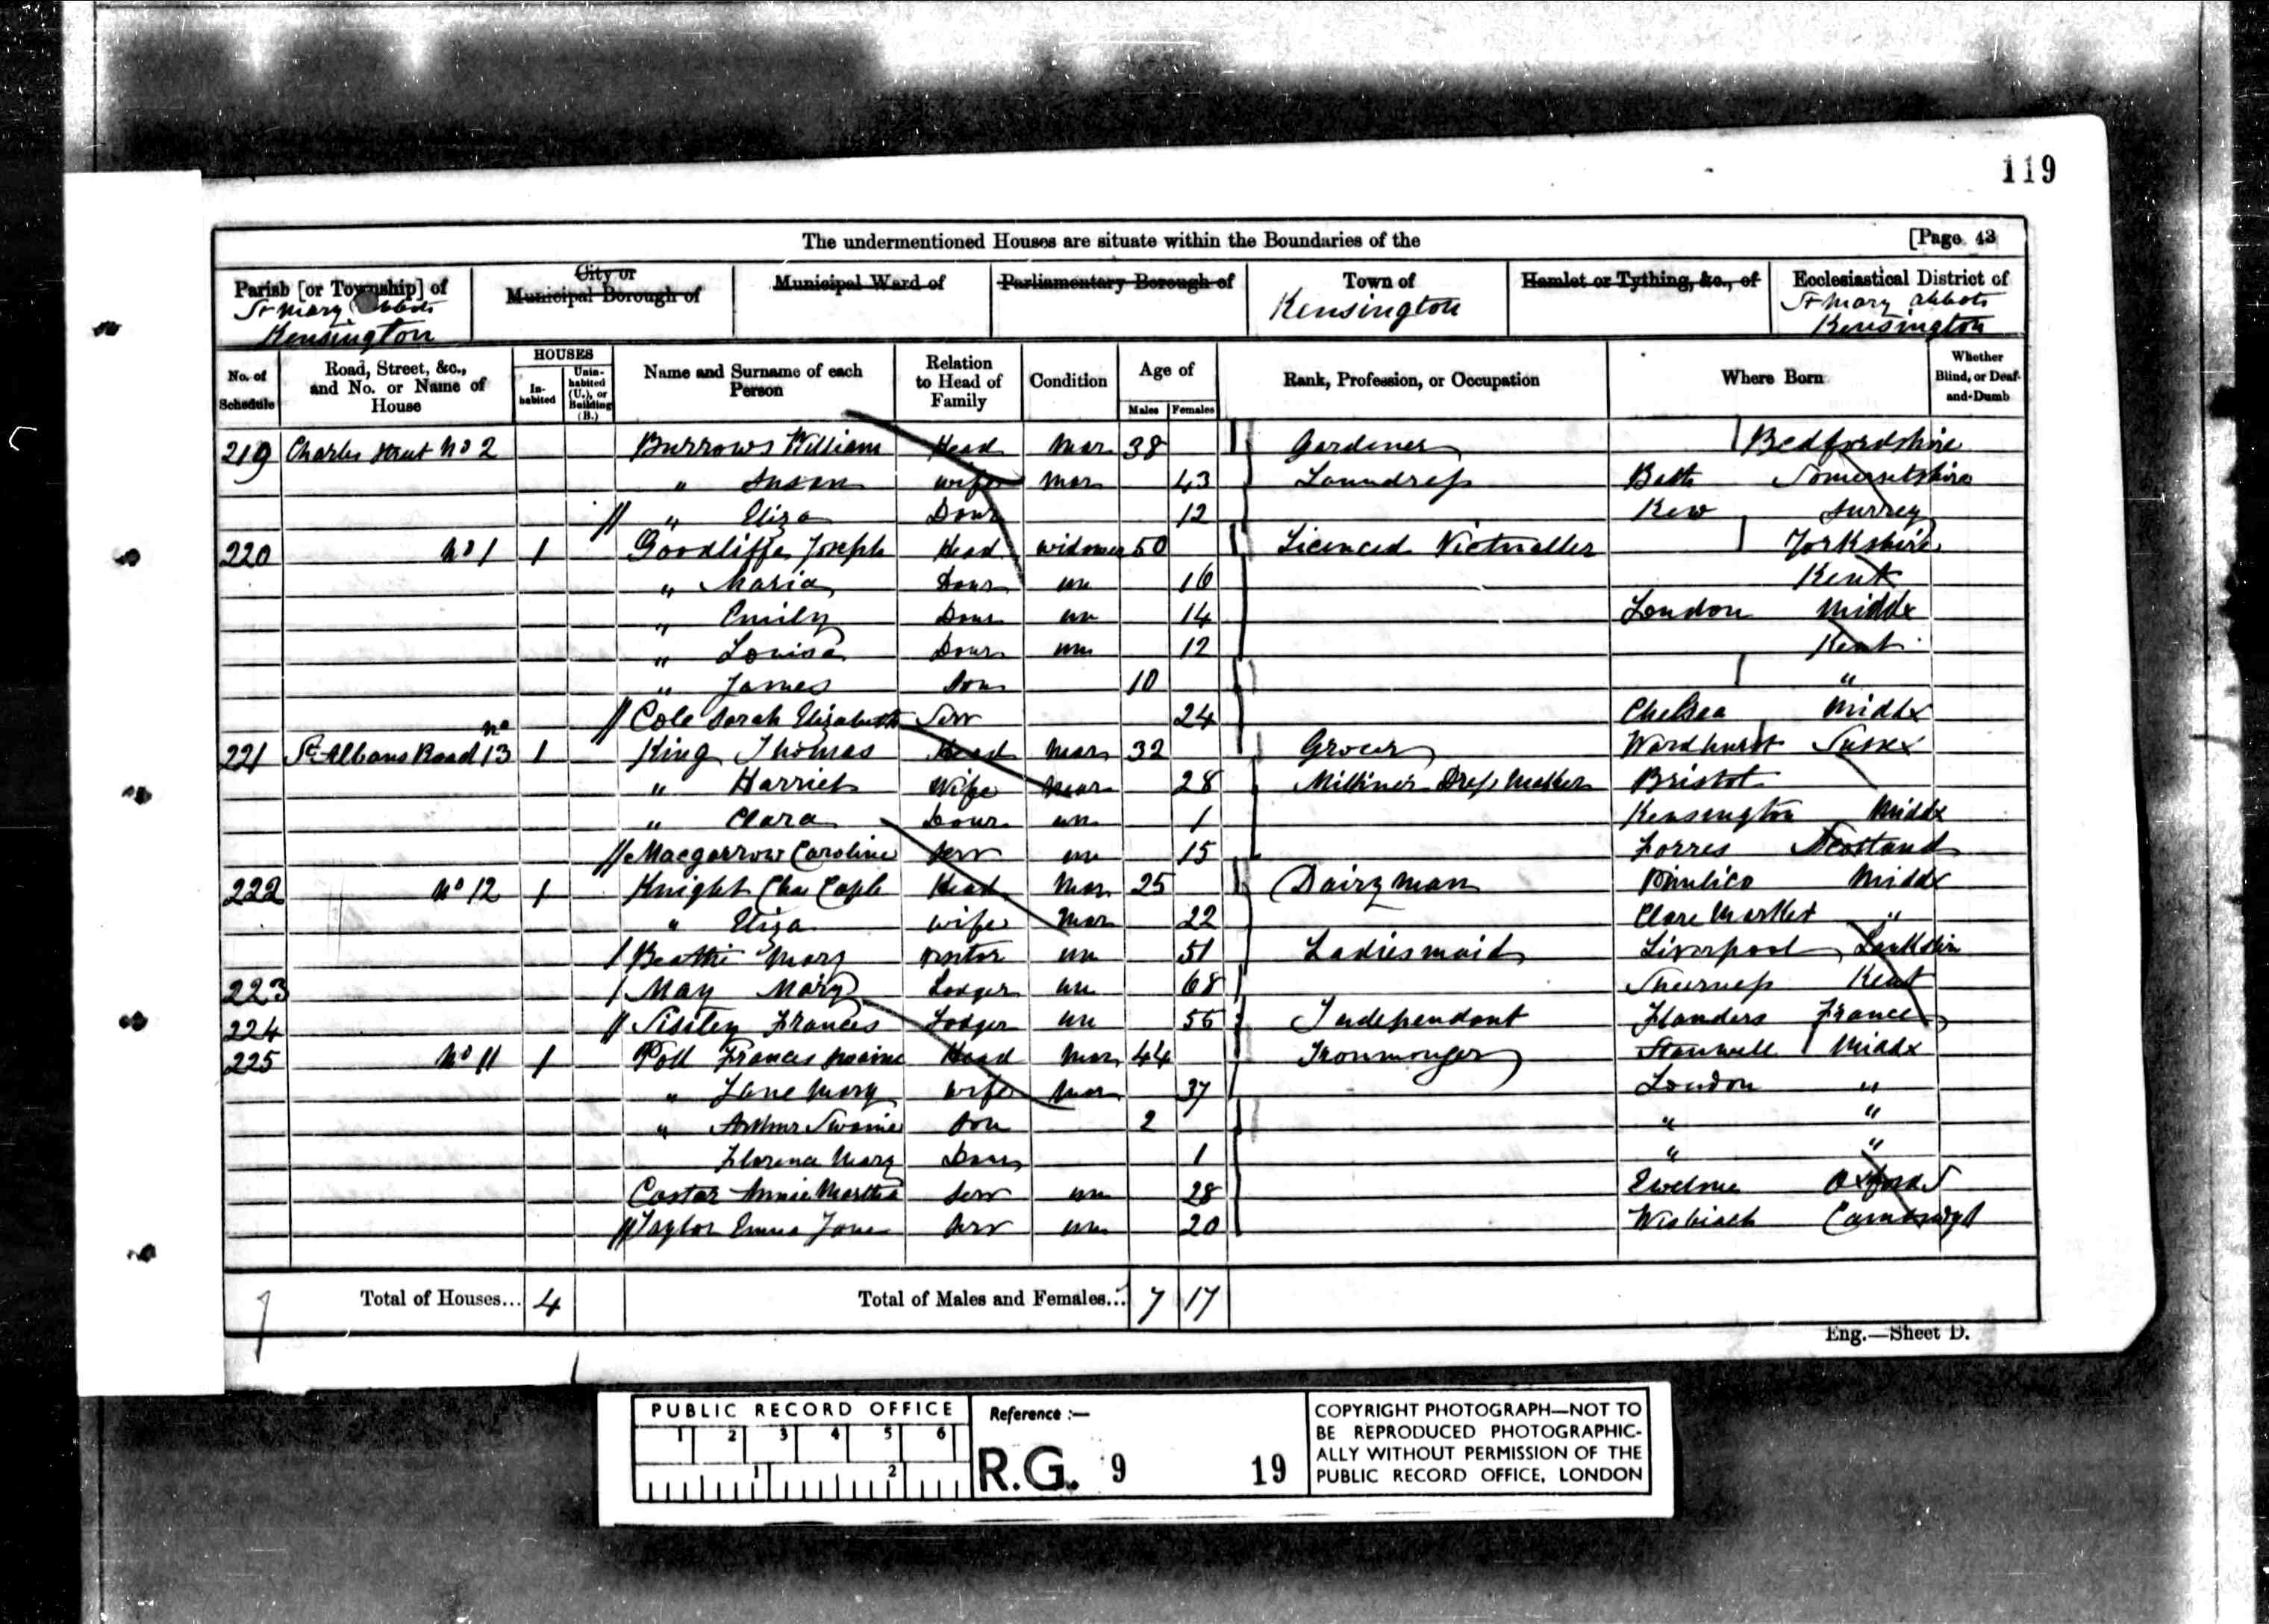 119
The undermentioned Houses are situate within the Boundaries of the [Page 43
Parish [or Township] of St Mary Abbots Kensington
City or Municipal Borough of
Municipal Ward of
Parliamentary Borough of
Town of Kensington
Hamlet or Tything, &c., of
Ecclesiastical District of St Mary Abbots Kensington
No. of Schedule
Road, Street, &c., and No. or Name of House
HOUSES
In-habited
Unin-habited (U.), or Building (B.)
Name and Surname of each Person
Relation to Head of Family
Condition
Age of
Males Females
Rank, Profession, or Occupation
Where Born
Whether Blind, or Deaf-and-Dumb
219 Charles Street No 2 Burrows William Head Mar 38 Gardener Bedfordshire
" Susan Wife Mar 43 Laundress Bath Somersetshire
" Eliza Daur 12 Kew Surrey
220 No 1 1 Goodliffe Joseph Head Widower 50 Licenced Victualler Yorkshire
" Maria Daur un 16 Kent
" Emily Daur un 14 London Middx
" Louisa Daur un 12 Kent
" James Son 10 "
Cole Sarah Elizabeth Serv 24 Chelsea Middx
221 St Albans Road No 13 1 King Thomas Head Mar 32 Grocer Wardhurst Sussex
" Harriet Wife Mar 28 Milliner Dress Maker Bristol
" Clara Daur un 1 Kensington Middx
Macgarrow Caroline Serv un 15 Forres Scotland
222 No 12 1 Knight Cha Head Mar 25 Dairyman Pimlico Middx
" Eliza Wife Mar 22 Clare Market "
Beattie Mary Visitor un 51 Ladiesmaid Liverpool
223 May Mary Lodger un 68 Sheerness Kent
224 Frances Lodger un Independent Flanders France
225 No 11 1 Poll Francis Head Mar 44 Ironmonger Stanwell Middx
" Jane Mary Wife Mar 37 London "
" Arthur Swaine Son 2 " "
Florence Mary Daur 1 " "
Castar Annie Martha Serv un 28 Ewelme Oxford
Taylor Emma Jane Serv un 20 Wisbieach
Total of Houses... 4 Total of Males and Females... 7 17
Eng.—Sheet D.
PUBLIC RECORD OFFICE
1 2 3 4 5 6
1 2
Reference :—
R.G. 9 19
COPYRIGHT PHOTOGRAPH—NOT TO
BE REPRODUCED PHOTOGRAPHIC-
ALLY WITHOUT PERMISSION OF THE
PUBLIC RECORD OFFICE, LONDON